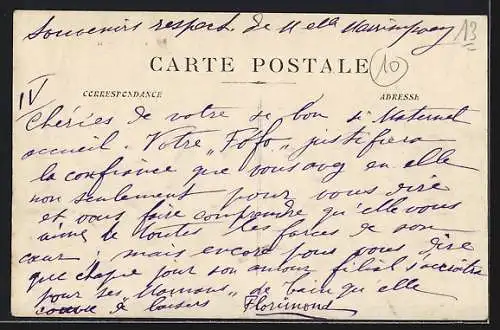 Souvenirs respect. de Melle
13
CARTE POSTALE
10
CORRESPONDANCE
ADRESSE
IV
Chéries de votre se bon si Maternel
accueil. Votre "Fofo" justifiera
la confiance que vous avez en elle
non seulement pour vous dire
et vous faire comprendre qu'elle vous
aime de toutes les forces de son
cœur; mais encore pous vous dire
que chaque jour son amour filial s'accroître
pour ses Mamans, de bain qu'elle
couvre de baisers Florimond